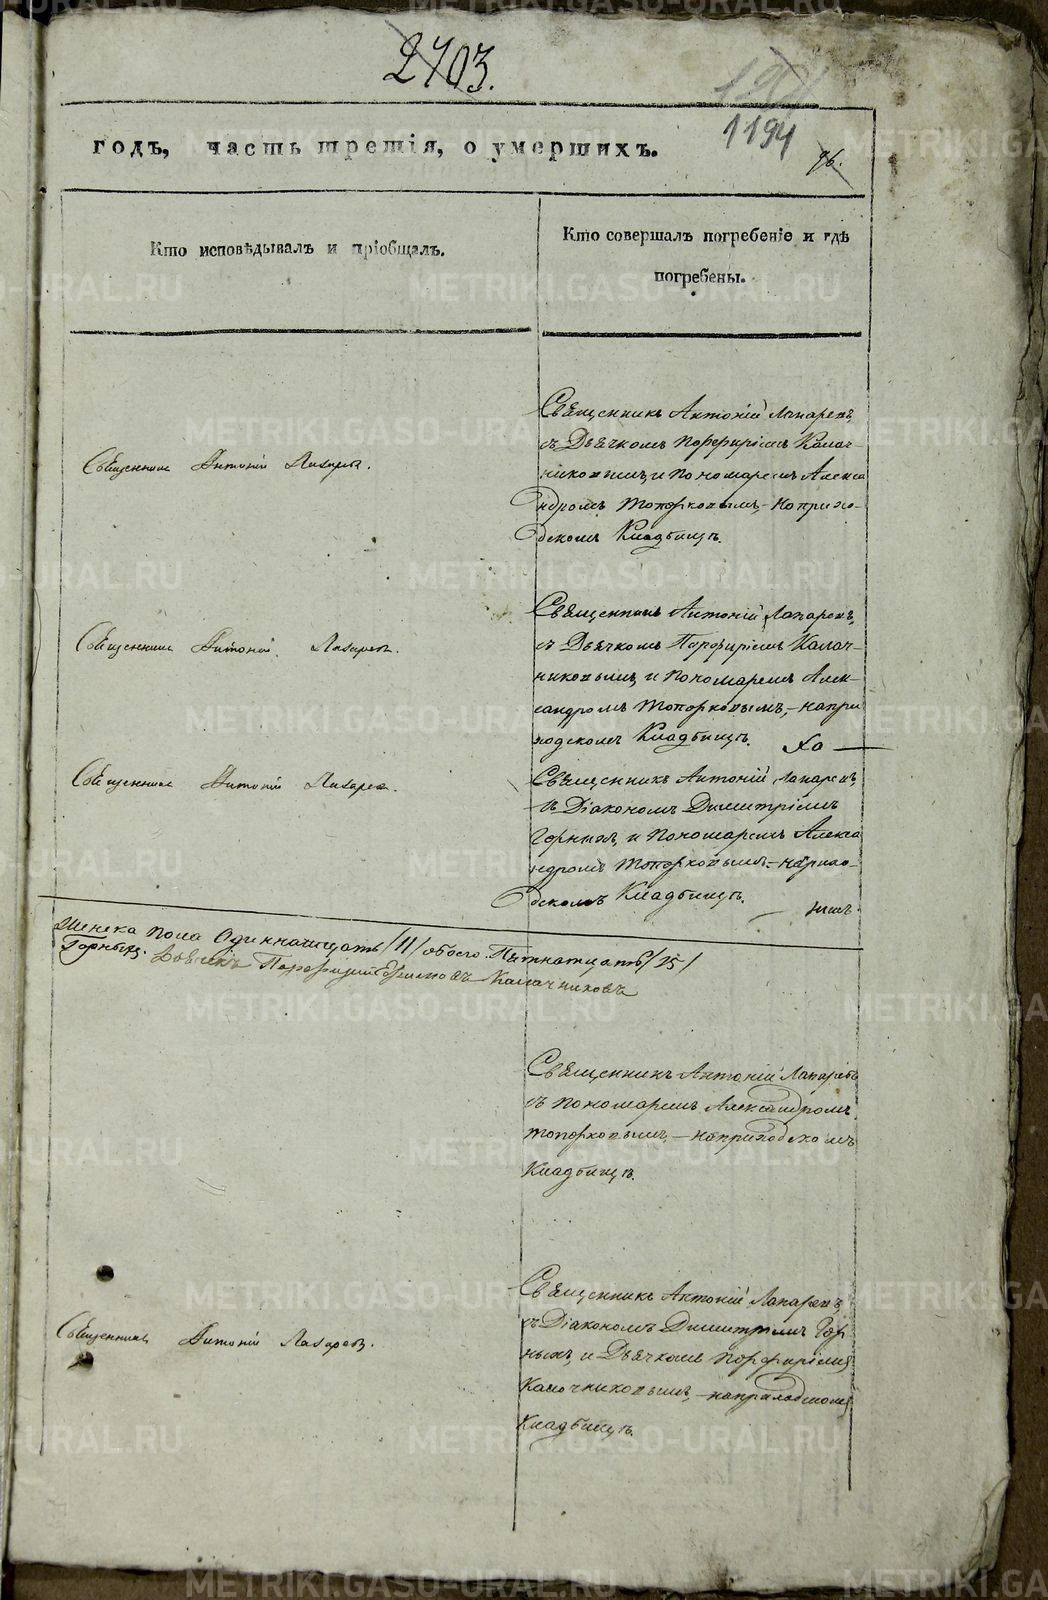 2703.
1194
96.
годъ, часть третія, о умершихъ.
Кто исповѣдывалъ и пріобщалъ.
Кто совершалъ погребеніе и гдѣ
погребены.
Священникъ Антоній Лазаревъ,
съ Дьячкомъ Порфиріемъ Калач-
никовымъ, и Пономаремъ Алекса
ндромъ Топорковымъ,- на прихо-
дскомъ Кладбищѣ.
Священникъ Антоній Лазаревъ.
Священникъ Антоній Лазаревъ,
съ Дьячкомъ Порфиріемъ Калач-
никовымъ, и Пономаремъ Алек-
сандромъ Топорковымъ,- на при
ходскомъ Кладбищѣ.
Священникъ Антоній Лазаревъ.
Священникъ Антоній Лазаревъ,
съ Діакономъ Димитріемъ
Горныхъ, и Пономаремъ Алекса
ндромъ Топорковымъ,- на прихо-
дскомъ Кладбищѣ.
Священникъ Антоній Лазаревъ.
Женска пола Одиннатцать /11/ обоего Пятнатцать /15/
Горныхъ. Дьячекъ Порфирій Калачниковъ
Священникъ Антоній Лазаревъ
съ Пономаремъ Александромъ
Топорковымъ,- на приходскомъ
Кладбищѣ.
Священникъ Антоній Лазаревъ,
съ Діакономъ Димитріемъ Гор
ныхъ, и Дьячкомъ Порфиріемъ
Калачниковымъ,- на приходскомъ
Кладбищѣ.
Священникъ Антоній Лазаревъ.
METRIKI.GASO-URAL.RU